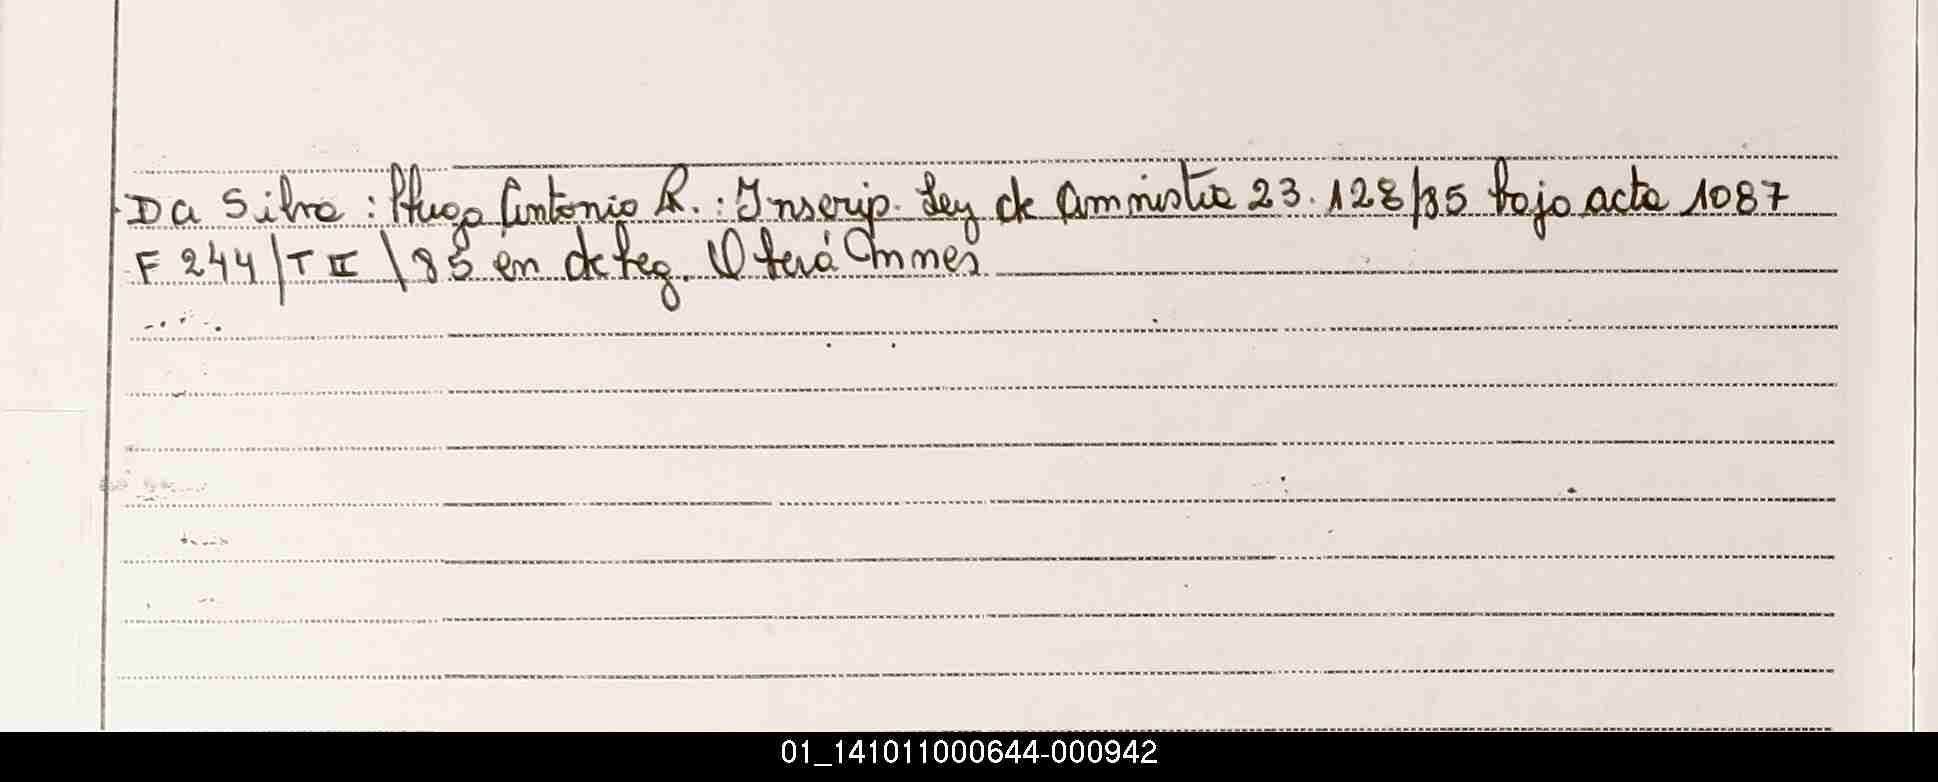 Da Silva: Hugo Antonio R.: Inscrip. Ley de Amnistia 23.128/85 bajo acta 1087
F 244/T II/85 en de leg. Oberá Mnes
01_141011000644-000942